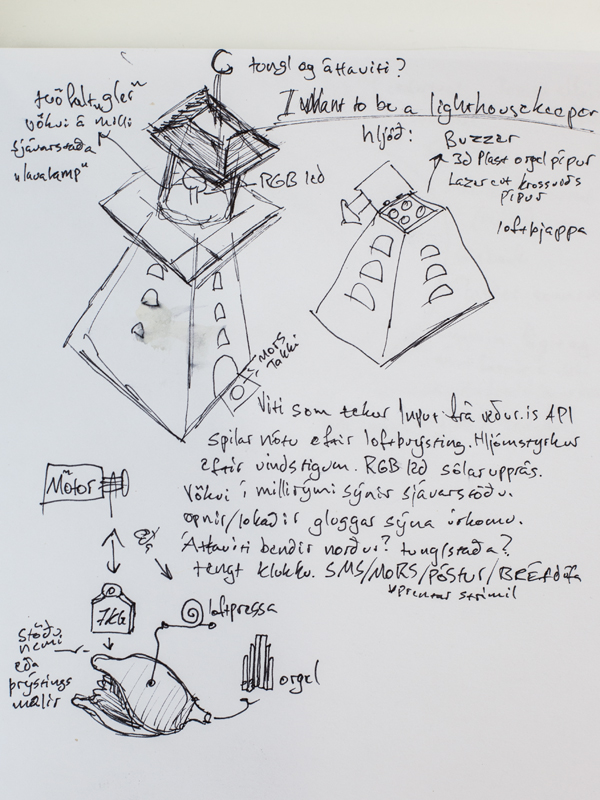 tungl og áttaviti?
I want to be a lighthousekeeper
tvöfalt "gler"
vökvi á milli
sjávarstaða
"lavalamp"
RGB led
hljóð: Buzzer
3d Plast orgel pípur
Lazer cut krossviðs
pípur
loftþjappa
MORS
Takki
Viti som tekur Input frá veður.is API
spilar nótu eftir loftþrýsting. Hljómstyrkur
eftir vindstigum. RGB led sólarupprás.
Vökvi í millirými sýnir sjávarstöðu.
opnir/lokaðir gluggar sýna úrkomu.
Áttaviti bendir norður? tunglstaða?
tengt klukku. SMS/MORS/PÓSTUR/BRÉFdúfa
prentar strimil
Mótor
7KG
loftpressa
orgel
stöðu
nemi
eða
þrýstings
mælir